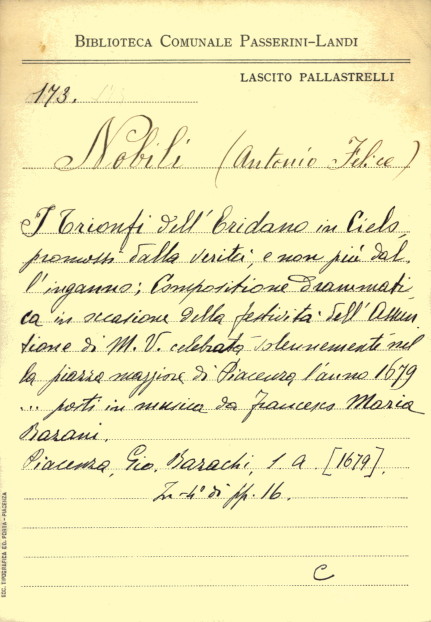 BIBLIOTECA COMUNALE PASSERINI-LANDI
LASCITO PALLASTRELLI
173.
Nobili (Antonio Felice)
I Trionfi dell'Eridano in Cielo,
promossi dalla verità, e non più dal-
l'inganno; Compositione Drammati-
ca in occasione della festività dell'Assun-
tione di M. V. celebrata solennemente nel
la piazza maggiore di Piacenza l'anno 1679
... posti in musica da Francesco Maria
Bazani.
Piacenza, Gio. Bazachi, s. a. [1679].
In-4° di pp. 16.
C
SOC. TIPOGRAFICA ED. PORTA - PIACENZA